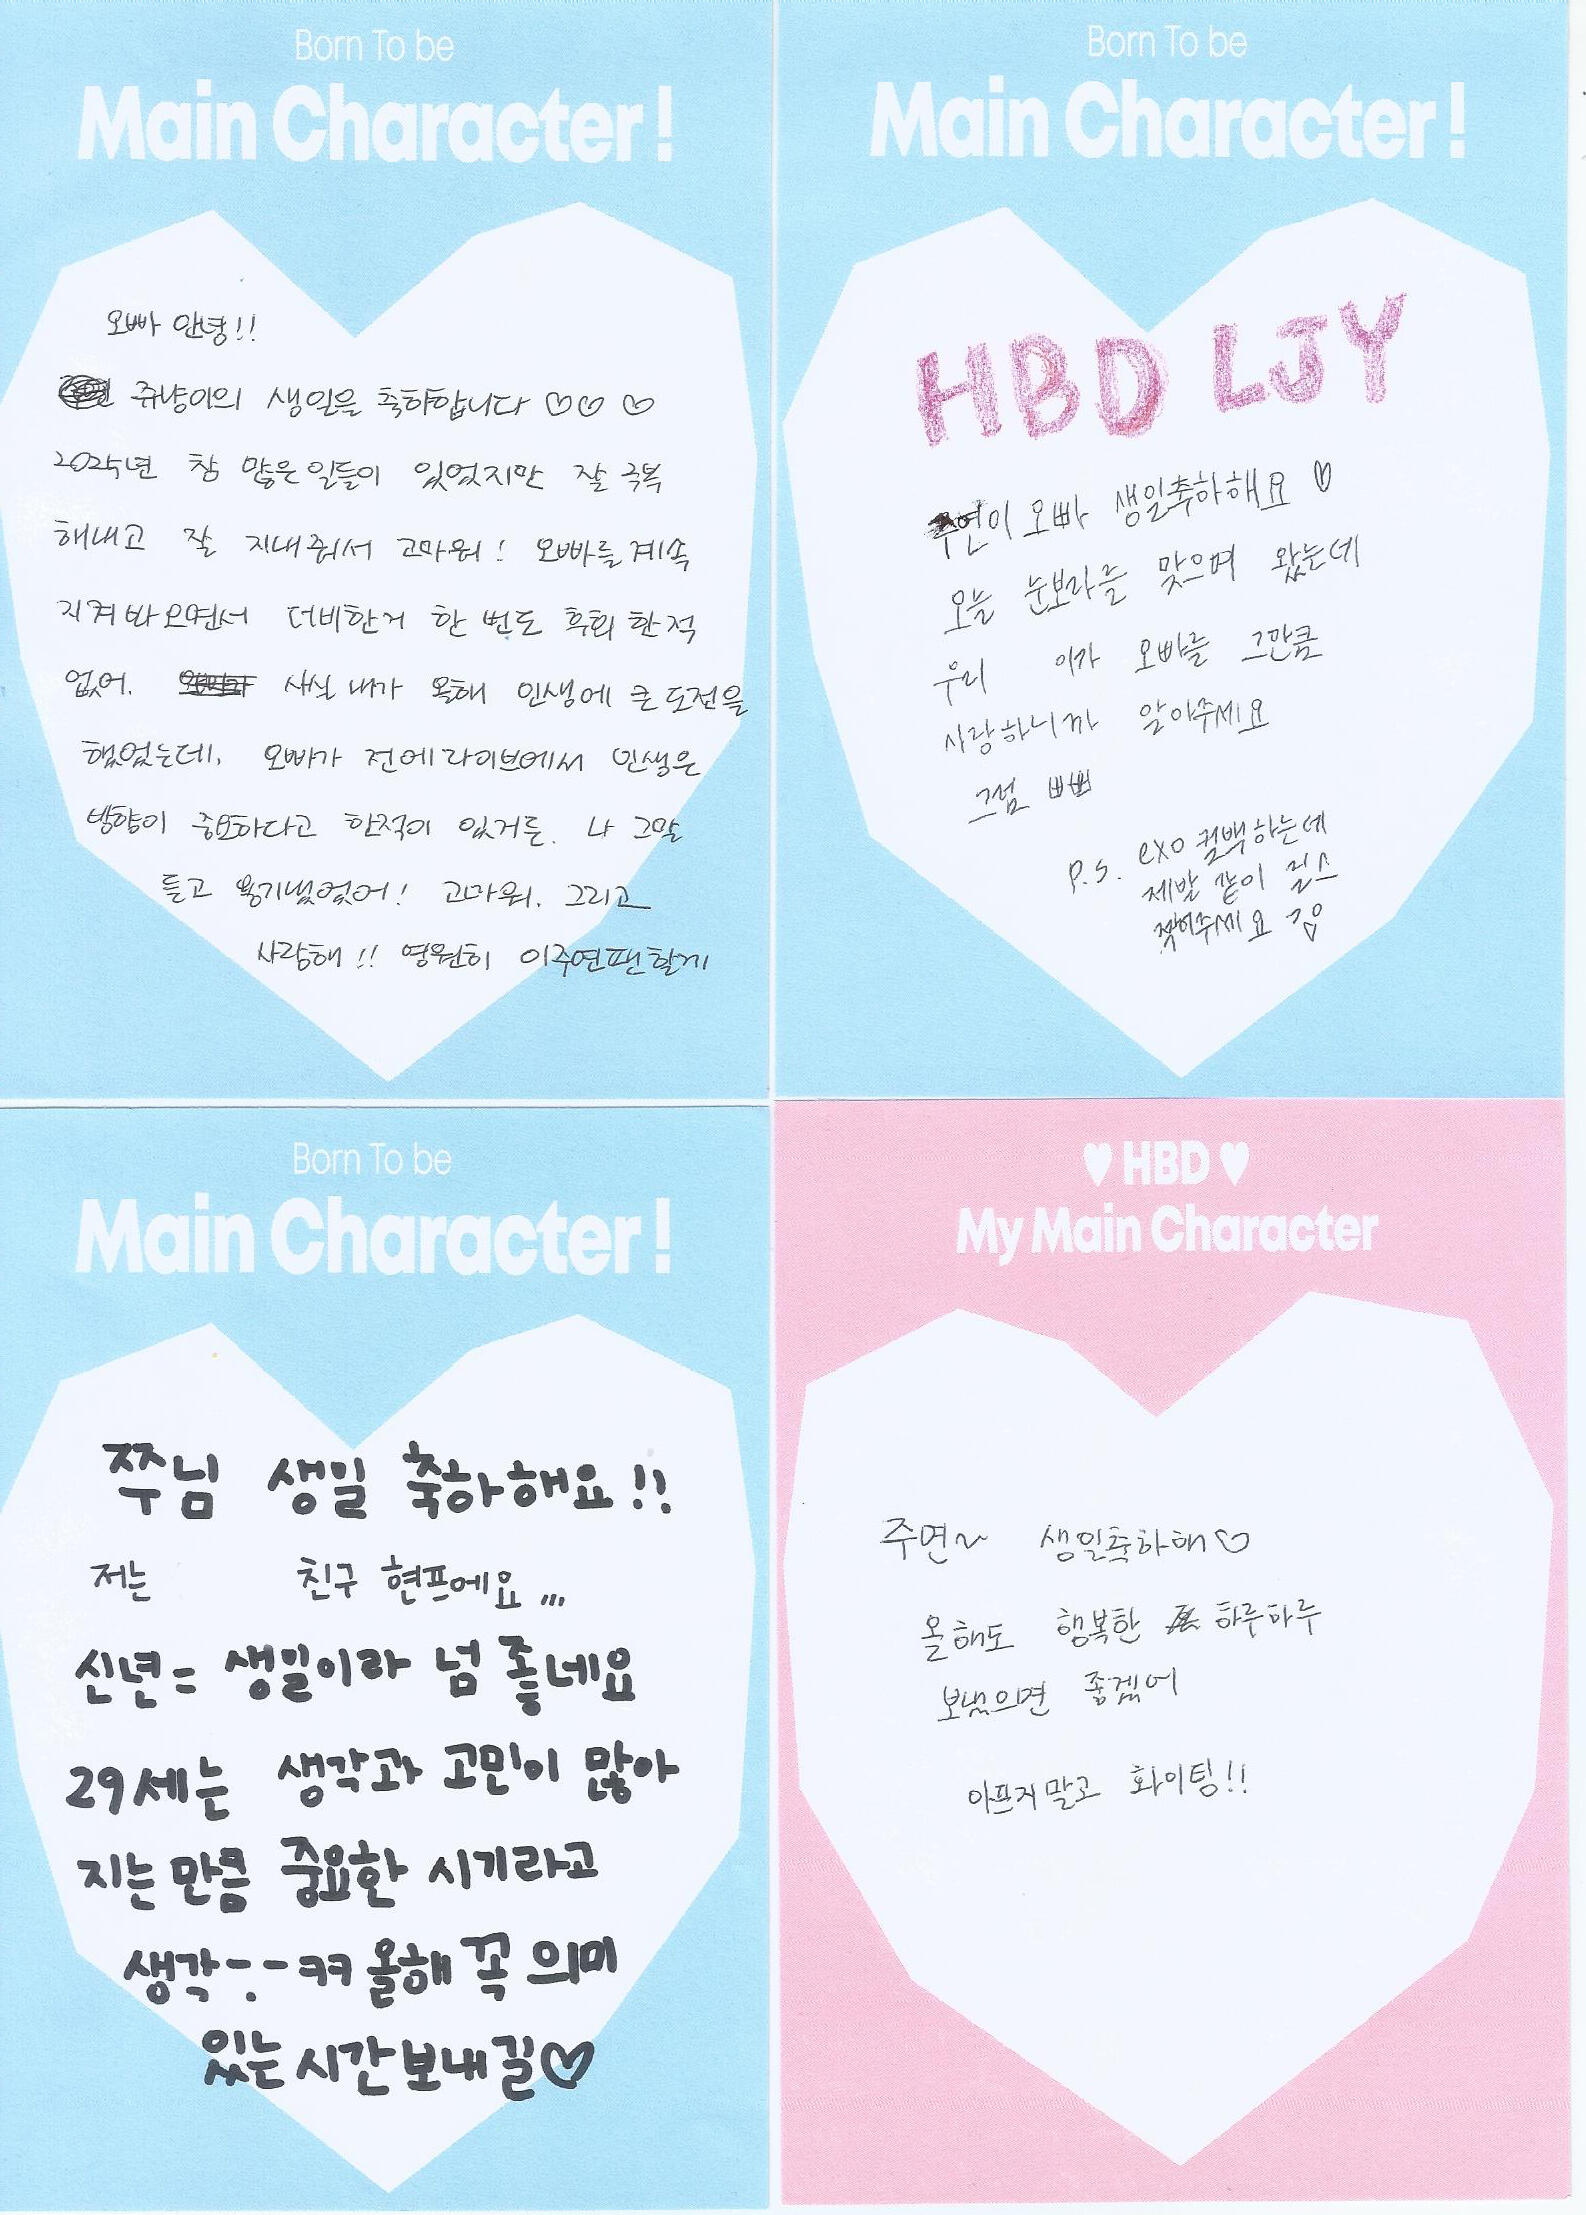 Born To be
Main Character!
오빠 안녕!!
쥬냥이의 생일을 축하합니다 ♡♡ ♡
2025년 참 많은일들이 있었지만 잘 극복
해내고 잘 지내줘서 고마워! 오빠를 계속
지켜봐오면서 더비한거 한 번도 후회 한 적
없어. 사실 내가 올해 인생에 큰 도전을
했었는데, 오빠가 전에 라이브에서 인생은
방향이 중요하다고 한적이 있거든. 나 그말
듣고 용기냈었어! 고마워. 그리고
사랑해!! 영원히 이주연팬할게
Born To be
Main Character!
HBD LJY
주연이 오빠 생일축하해요 ♡
오늘 눈보라를 맞으며 왔는데
우리 이가 오빠를 그만큼
사랑하니까 알아주세요
그럼 뿅
P.S. exo 컴백하는데
제발 같이 릴스
찍어주세요
Born To be
Main Character!
쭈님 생일 축하해요!!
저는 친구 현프에요...
신년 = 생일이라 넘 좋네요
29세는 생각과 고민이 많아
지는 만큼 중요한 시기라고
생각÷-ㅋㅋ 올해 꼭 의미
있는 시간 보내길♡
♥ HBD ♥
My Main Character
주연~ 생일축하해♡
올해도 행복한 하루하루
보냈으면 좋겠어
아프지말고 화이팅!!